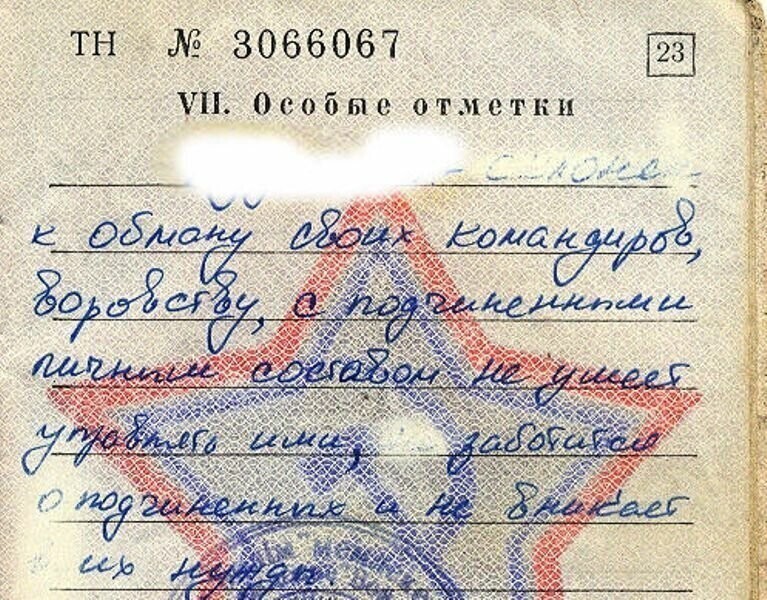 ТН № 3066067
23
VII. Особые отметки
- склонен
к обману своих командиров,
воровству, с подчиненными
личным составом не умеет
управлять ими, заботится
о подчиненных и не вникает
их нужды.